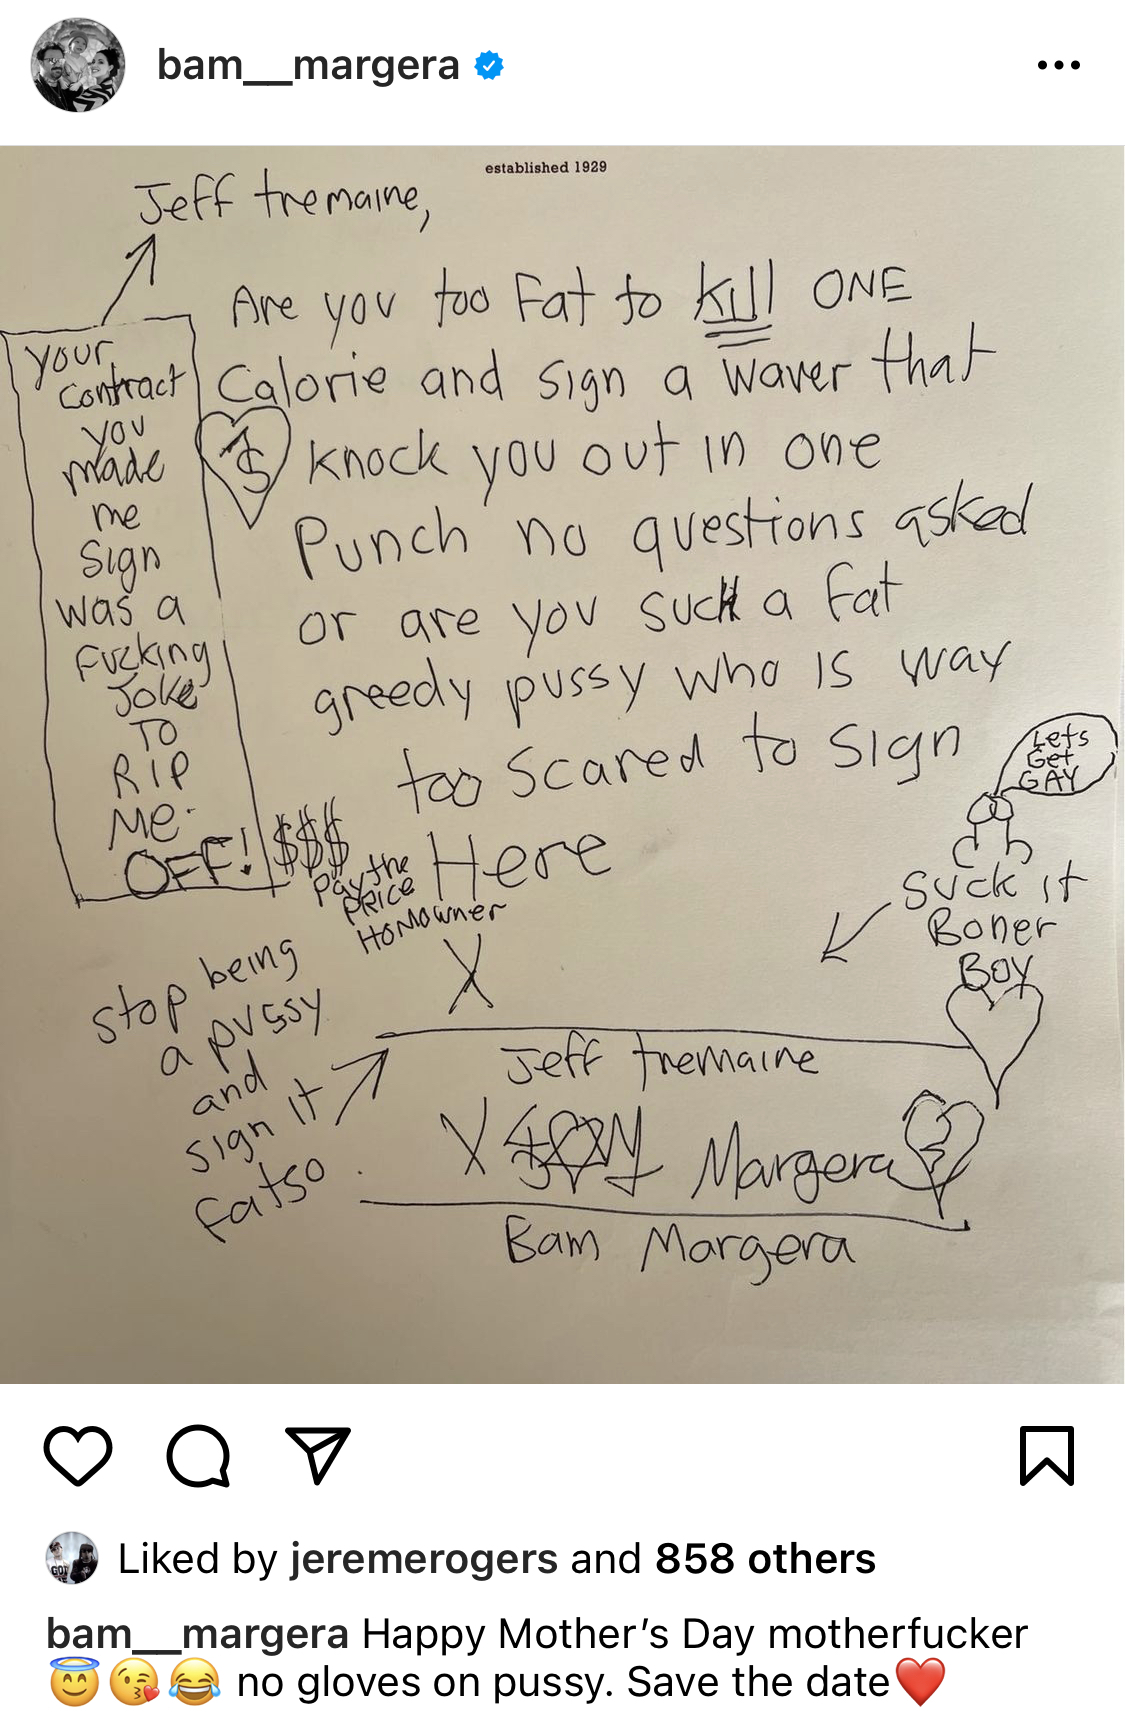 bam__margera
established 1929
Jeff tremaine,
Are you too Fat to Kill ONE
Calorie and sign a waver that
$ knock you out in one
Punch no questions asked
or are you such a fat
greedy pussy who is way
too scared to sign
Here
your
contract
you
made
me
sign
was a
fucking
Joke
TO
RIP
Me
OFF!
$$$
Pay the
PRICE
HOMOwner
Lets
Get
GAY
Suck it
Boner
Boy
stop being
a pussy
and
sign it
fatso
X
Jeff tremaine
X Margera
Bam Margera
Liked by jeremerogers and 858 others
bam__margera Happy Mother’s Day motherfucker
😇😘😂 no gloves on pussy. Save the date❤️